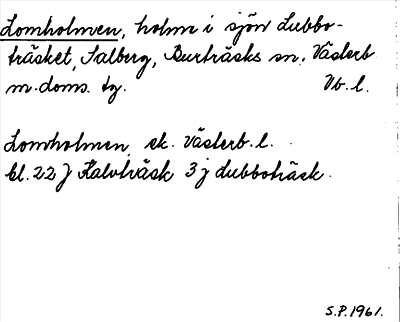 Lomholmen, holme i sjön Lubbo-
träsket, Salberg, Burträsks sn. Västerb
m. doms. tg. Vb. l.
Lomholmen, ek. Västerb. l.
bl. 22 J Kalvträsk 3 j Lubboträsk.
S.P. 1961.